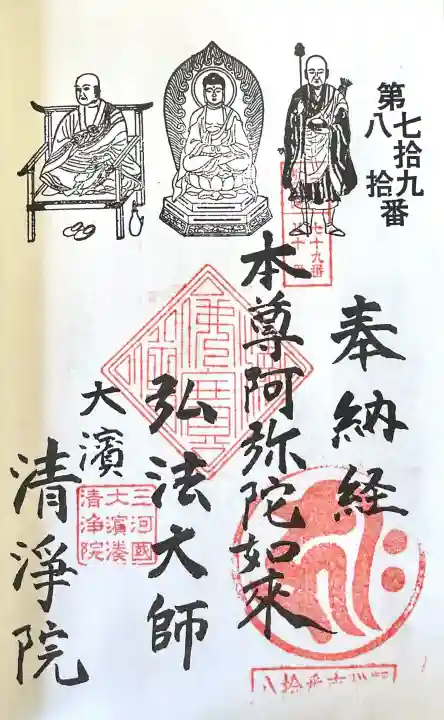 第七拾九番
八拾
奉納経
七十九番
本尊阿弥陀如来
弘法大師
大濱
清淨院
三河國
大濱湊
清浄院